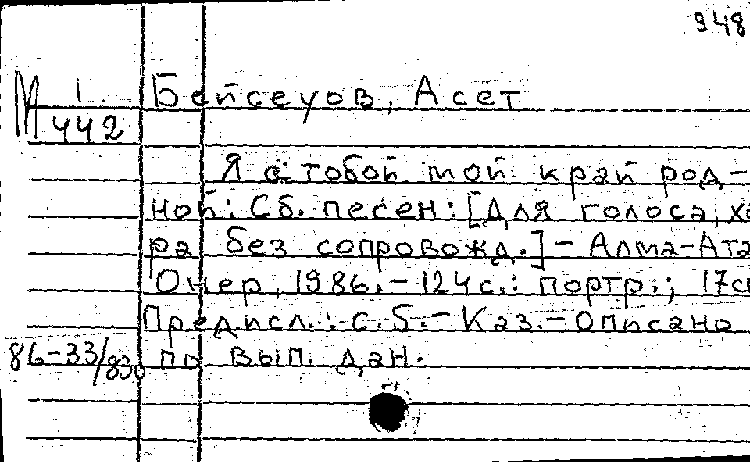 948
М 1/442 Бейсеуов, Асет
Я с тобой мой край род-
ной: Сб. песен: [Для голоса, хо
ра без сопровожд.] - Алма-Ата
Онер, 1986. - 124 с.: портр.; 17 см
Предисл.: с. 5. - Каз. - Описано
86-33/830 по вып. дан.